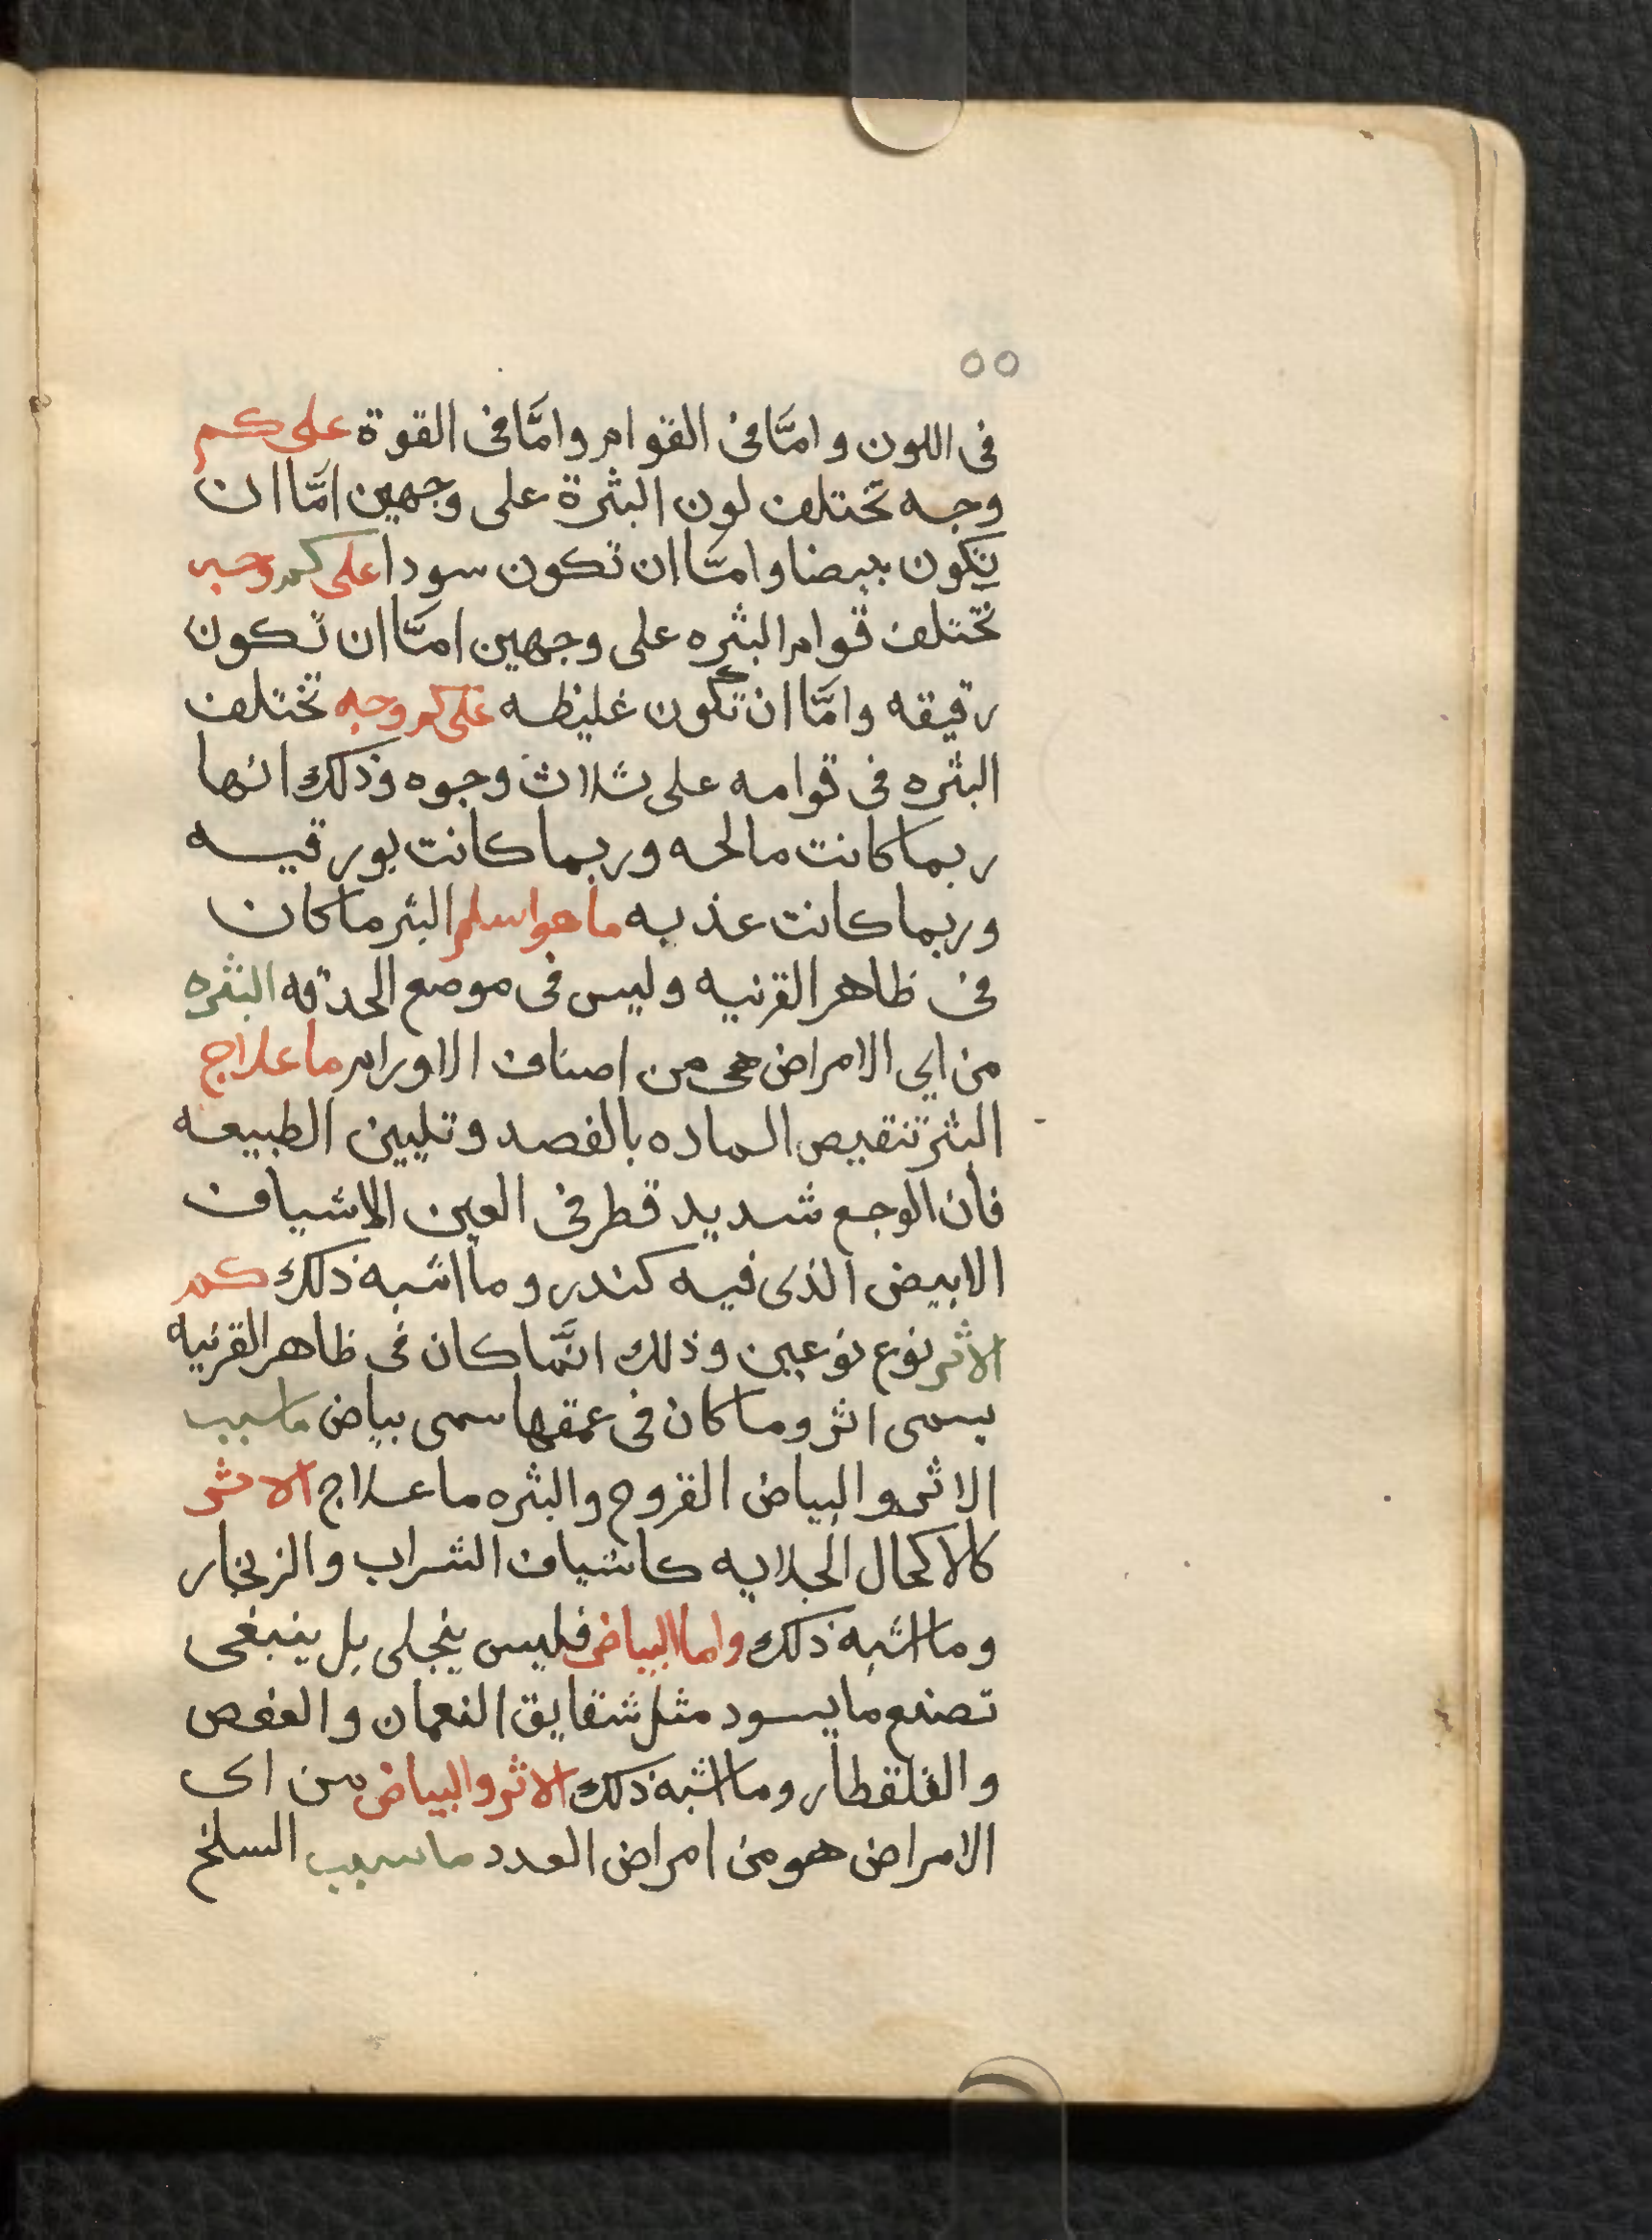 ٥٥
فى اللون وامَّا فى القوام وامَّا فى القوة على كم
وجه تختلف لون البثرة على وجهين امَّا ان
تكون بيضا وامَّا ان تكون سودا على كم وجه
تختلف قوام البثره على وجهين امَّا ان تكون
رقيقه وامَّا ان تكون غليظه على كم وجه تختلف
البثره فى قوامه على ثلاث وجوه وذلك انها
ربما كانت مالحه وربما كانت بورقيه
وربما كانت عذبه ما هو اسلم البثر ما كان
فى ظاهر القرنيه وليس فى موضع الحدقه البثره
من اي الامراض هى من اصناف الاورام ما علاج
البثر تنقيص الماده بالفصد وتليين الطبيعه
فأن الوجع شديد قطر فى العين الاشياف
الابيض الذى فيه كندر وما اشبه ذلك كم
الاثر نوع نوعين وذلك انَّما كان فى ظاهر القرنيه
يسمى اثر وما كان فى عمقها سمى بياض ما سبب
الاثر والبياض القروح والبثره ما علاج الاثر
كالاكحال الجلايه كاشياف الشراب والزنجار
وما اشبه ذلك واما البياض فليس ينجلى بل ينبغى
تصنع ما يسود مثل شقايق النعمان والعفص
والقلقطار وما اشبه ذلك الاثر والبياض من اى
الامراض هو من امراض العدد ما سبب السلخ